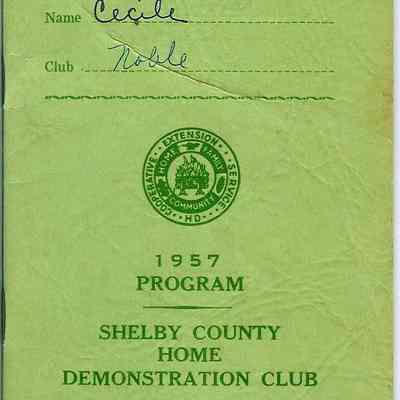 Name Cecile
Club Noble
COOPERATIVE EXTENSION SERVICE
HOME FAMILY
COMMUNITY
H D
1957
PROGRAM
SHELBY COUNTY
HOME
DEMONSTRATION CLUB